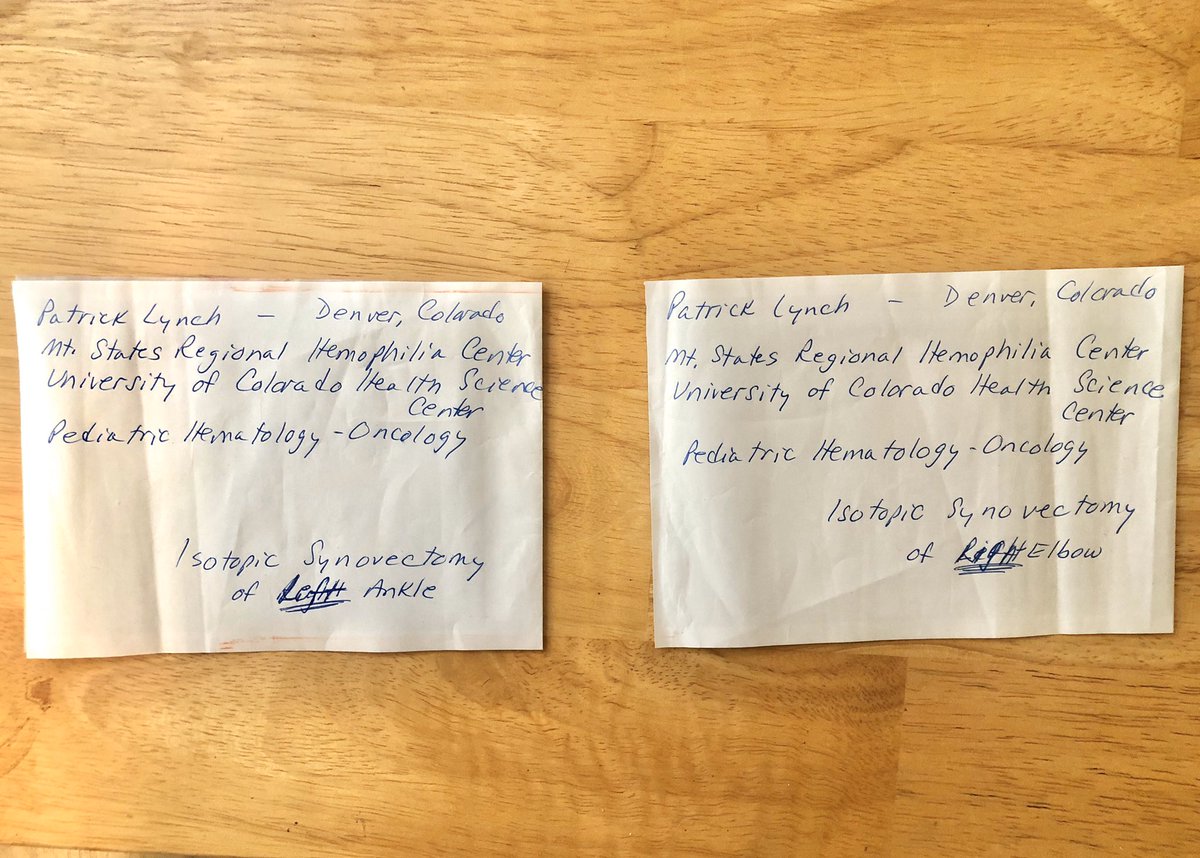 Patrick Lynch — Denver, Colorado
Mt. States Regional Hemophilia Center
University of Colorado Health Science
Center
Pediatric Hematology - Oncology
Isotopic Synovectomy
of Left Ankle
Patrick Lynch — Denver, Colorado
Mt. States Regional Hemophilia Center
University of Colorado Health Science
Center
Pediatric Hematology - Oncology
Isotopic Synovectomy
of Right Elbow